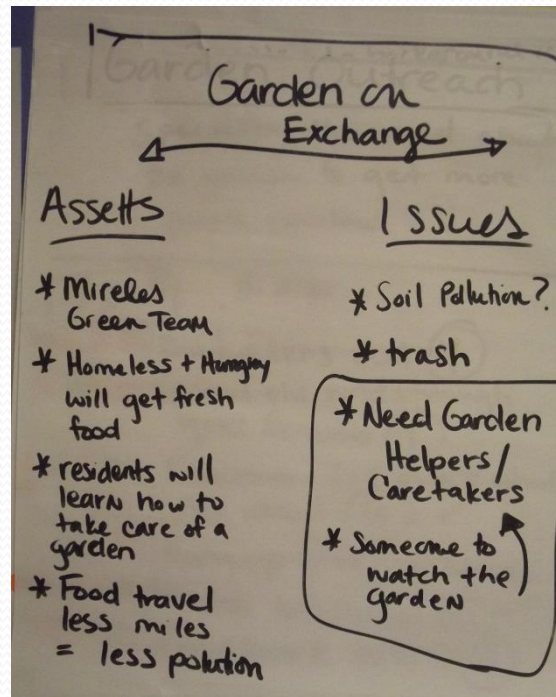 Garden Outreach
Garden on
Exchange
Assetts
* Mireles
Green Team
* Homeless + Hungry
will get fresh
food
* residents will
learn how to
take care of a
garden
* Food travel
less miles
= less polution
Issues
* Soil Pollution?
* trash
* Need Garden
Helpers/
Caretakers
* Someone to
watch the
garden